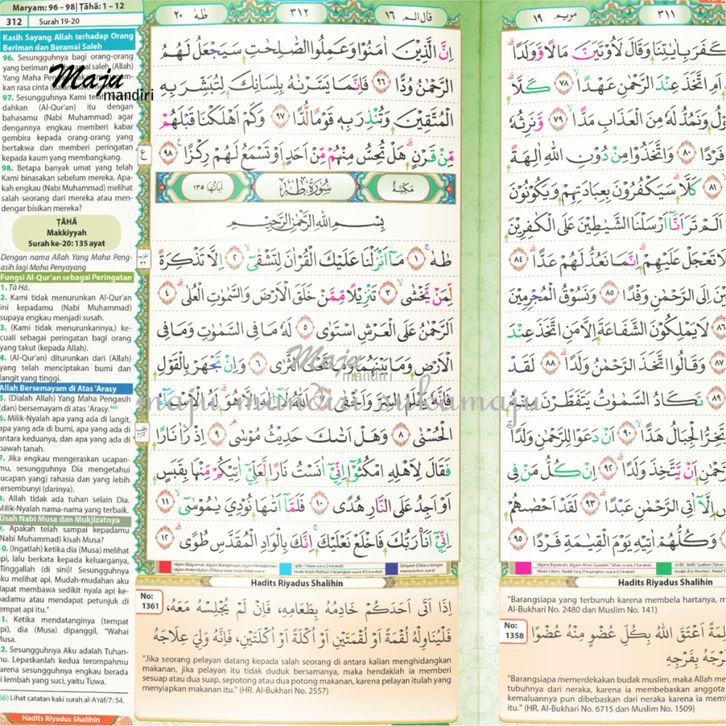 Maryam: 96 – 98 | Ṭāhā: 1 – 12
312 Surah 19-20
Kasih Sayang Allah terhadap Orang
Beriman dan Beramal Saleh
96. Sesungguhnya bagi orang-orang
97. Sesungguhnya Kami
dahkan (Al-Qur'an) itu dengan
bahasamu (Nabi Muhammad) agar
dengannya engkau memberi kabar
gembira kepada orang-orang yang
bertakwa dan memberi peringatan
kepada kaum yang membangkang.
98. Betapa banyak umat yang telah
Kami binasakan sebelum mereka. Apa-
kah engkau (Nabi Muhammad) melihat
salah seorang dari mereka atau men-
dengar bisikan mereka?
ṬĀHĀ
Makkiyyah
Surah ke-20: 135 ayat
Dengan nama Allah Yang Maha Peng-
asih lagi Maha Penyayang
Fungsi Al-Qur'an sebagai Peringatan
1. Ṭā Hā.
2. Kami tidak menurunkan Al-Qur'an
ini kepadamu (Nabi Muhammad)
supaya engkau menjadi susah.
3. (Kami tidak menurunkannya,) ke-
cuali sebagai peringatan bagi orang
yang takut (kepada Allah).
4. (Al-Qur'an) diturunkan dari (Allah)
yang telah menciptakan bumi dan
langit yang tinggi.
Allah Bersemayam di Atas 'Arasy
5. (Dialah Allah) Yang Maha Pengasih
(dan) bersemayam di atas 'Arasy.
6. Milik-Nyalah apa yang ada di langit,
apa yang ada di bumi, apa yang ada di
antara keduanya, dan apa yang ada di
bawah tanah.
7. Jika engkau mengeraskan ucapan-
mu, sesungguhnya Dia mengetahui
(ucapan yang) rahasia dan yang lebih
tersembunyi (darinya).
8. Allah tidak ada tuhan selain Dia.
Milik-Nyalah nama-nama yang terbaik.
Kisah Nabi Musa dan Mukjizatnya
9. Apakah telah sampai kepadamu
(Nabi Muhammad) kisah Musa?
10. (Ingatlah) ketika dia (Musa) melihat
api, lalu berkata kepada keluarganya,
"Tinggallah (di sini)! Sesungguhnya
aku melihat api. Mudah-mudahan aku
dapat membawa sedikit nyala api ke-
padamu atau mendapat petunjuk di
tempat api itu."
11. Ketika mendatanginya (tempat
api), dia (Musa) dipanggil, "Wahai
Musa.
12. Sesungguhnya Aku adalah Tuhan-
mu. Lepaskanlah kedua terompahmu
karena sesungguhnya engkau berada
di lembah yang suci, yaitu Tuwa.
Lihat catatan kaki surah al-A'rāf/7: 54.
Hadits Riyadus Shalihin
Maju
mandiri
طه ٢٠ ٣١٢ قال الم ١٦
اِنَّ الَّذِيْنَ اٰمَنُوْا وَعَمِلُوا الصّٰلِحٰتِ سَيَجْعَلُ لَهُمُ
الرَّحْمٰنُ وُدًّا ٩٦ فَاِنَّمَا يَسَّرْنٰهُ بِلِسَانِكَ لِتُبَشِّرَ بِهِ
الْمُتَّقِيْنَ وَتُنْذِرَ بِهٖ قَوْمًا لُّدًّا ٩٧ وَكَمْ اَهْلَكْنَا قَبْلَهُمْ
مِّنْ قَرْنٍۗ هَلْ تُحِسُّ مِنْهُمْ مِّنْ اَحَدٍ اَوْ تَسْمَعُ لَهُمْ رِكْزًا ٩٨
مكية سورة طه اياتها ١٣٥
بِسْمِ اللّٰهِ الرَّحْمٰنِ الرَّحِيْمِ
طٰهٰ ١ مَآ اَنْزَلْنَا عَلَيْكَ الْقُرْاٰنَ لِتَشْقٰٓى ٢ اِلَّا تَذْكِرَةً
لِّمَنْ يَّخْشٰى ٣ تَنْزِيْلًا مِّمَّنْ خَلَقَ الْاَرْضَ وَالسَّمٰوٰتِ الْعُلٰى ٤
اَلرَّحْمٰنُ عَلَى الْعَرْشِ اسْتَوٰى ٥ لَهٗ مَا فِى السَّمٰوٰتِ وَمَا فِى
الْاَرْضِ وَمَا بَيْنَهُمَا وَمَا تَحْتَ الثَّرٰى ٦ وَاِنْ تَجْهَرْ بِالْقَوْلِ
فَاِنَّهٗ يَعْلَمُ السِّرَّ وَاَخْفٰى ٧ اَللّٰهُ لَآ اِلٰهَ اِلَّا هُوَۗ لَهُ الْاَسْمَاۤءُ
الْحُسْنٰى ٨ وَهَلْ اَتٰىكَ حَدِيْثُ مُوْسٰى ٩ اِذْ رَاٰ نَارًا
فَقَالَ لِاَهْلِهِ امْكُثُوْٓا اِنِّيْٓ اٰنَسْتُ نَارًا لَّعَلِّيْٓ اٰتِيْكُمْ مِّنْهَا بِقَبَسٍ
اَوْ اَجِدُ عَلَى النَّارِ هُدًى ١٠ فَلَمَّآ اَتٰىهَا نُوْدِيَ يٰمُوْسٰٓى ١١
اِنِّيْٓ اَنَا۠ رَبُّكَ فَاخْلَعْ نَعْلَيْكَۚ اِنَّكَ بِالْوَادِ الْمُقَدَّسِ طُوًى ١٢
Maju
mandiri
maju mandiri sukumaju
Hadits Riyadus Shalihin
No:
1361
إِذَا أَتَى أَحَدَكُمْ خَادِمُهُ بِطَعَامِهِ، فَإِنْ لَمْ يُجْلِسْهُ مَعَهُ،
فَلْيُنَاوِلْهُ لُقْمَةً أَوْ لُقْمَتَيْنِ أَوْ أُكْلَةً أَوْ أُكْلَتَيْنِ، فَإِنَّهُ وَلِيَ عِلَاجَهُ
"Jika seorang pelayan datang kepada salah seorang di antara kalian menghidangkan
makanan, jika pelayan itu tidak duduk bersamanya, maka hendaklah ia memberi
sesuap atau dua suap, sepotong atau dua potong makanan, karena pelayan itulah yang
menyiapkan makanan itu." (HR. Al-Bukhari No. 2557)
مريم ١٩ ٣١١
كَفَرَ بِاٰيٰتِنَا وَقَالَ لَاُوْتَيَنَّ مَالًا وَّوَلَدًا
اَمِ اتَّخَذَ عِنْدَ الرَّحْمٰنِ عَهْدًا ٧٨ كَلَّا
وَنَمُدُّ لَهٗ مِنَ الْعَذَابِ مَدًّا ٧٩ وَنَرِثُهٗ
فَرْدًا ٨٠ وَاتَّخَذُوْا مِنْ دُوْنِ اللّٰهِ اٰلِهَةً
٨١ كَلَّا سَيَكْفُرُوْنَ بِعِبَادَتِهِمْ وَيَكُوْنُوْنَ
اَلَمْ تَرَ اَنَّآ اَرْسَلْنَا الشَّيٰطِيْنَ عَلَى الْكٰفِرِيْنَ
لَا تَعْجَلْ عَلَيْهِمْۗ اِنَّمَا نَعُدُّ لَهُمْ عَدًّا ٨٤
اِلَى الرَّحْمٰنِ وَفْدًا ٨٥ وَنَسُوْقُ الْمُجْرِمِيْنَ
لَا يَمْلِكُوْنَ الشَّفَاعَةَ اِلَّا مَنِ اتَّخَذَ عِنْدَ
٨٧ وَقَالُوا اتَّخَذَ الرَّحْمٰنُ وَلَدًا ٨٨ لَقَدْ
٨٩ تَكَادُ السَّمٰوٰتُ يَتَفَطَّرْنَ
وَتَخِرُّ الْجِبَالُ هَدًّا ٩٠ اَنْ دَعَوْا لِلرَّحْمٰنِ وَلَدًا
اَنْ يَّتَّخِذَ وَلَدًا ٩٢ اِنْ كُلُّ مَنْ فِى
اِلَّآ اٰتِى الرَّحْمٰنِ عَبْدًا ٩٣ لَقَدْ اَحْصٰىهُمْ
وَكُلُّهُمْ اٰتِيْهِ يَوْمَ الْقِيٰمَةِ فَرْدًا ٩٥
Hadits Riyadus Shalihin
"Barangsiapa yang terbunuh karena membela hartanya,
Al-Bukhari No. 2480 dan Muslim No. 141)
No:
1358
أَعْتَقَ اللهُ بِكُلِّ عُضْوٍ مِنْهُ عُضْوًا
فَرْجَهُ بِفَرْجِهِ
"Barangsiapa memerdekakan budak muslim, maka Allah
tubuhnya dari neraka, karena ia membebaskan anggota
kemaluannya pun dibebaskan dari neraka karena ia
itu." (HR. Al-Bukhari No. 6715 dan Muslim No. 1509)